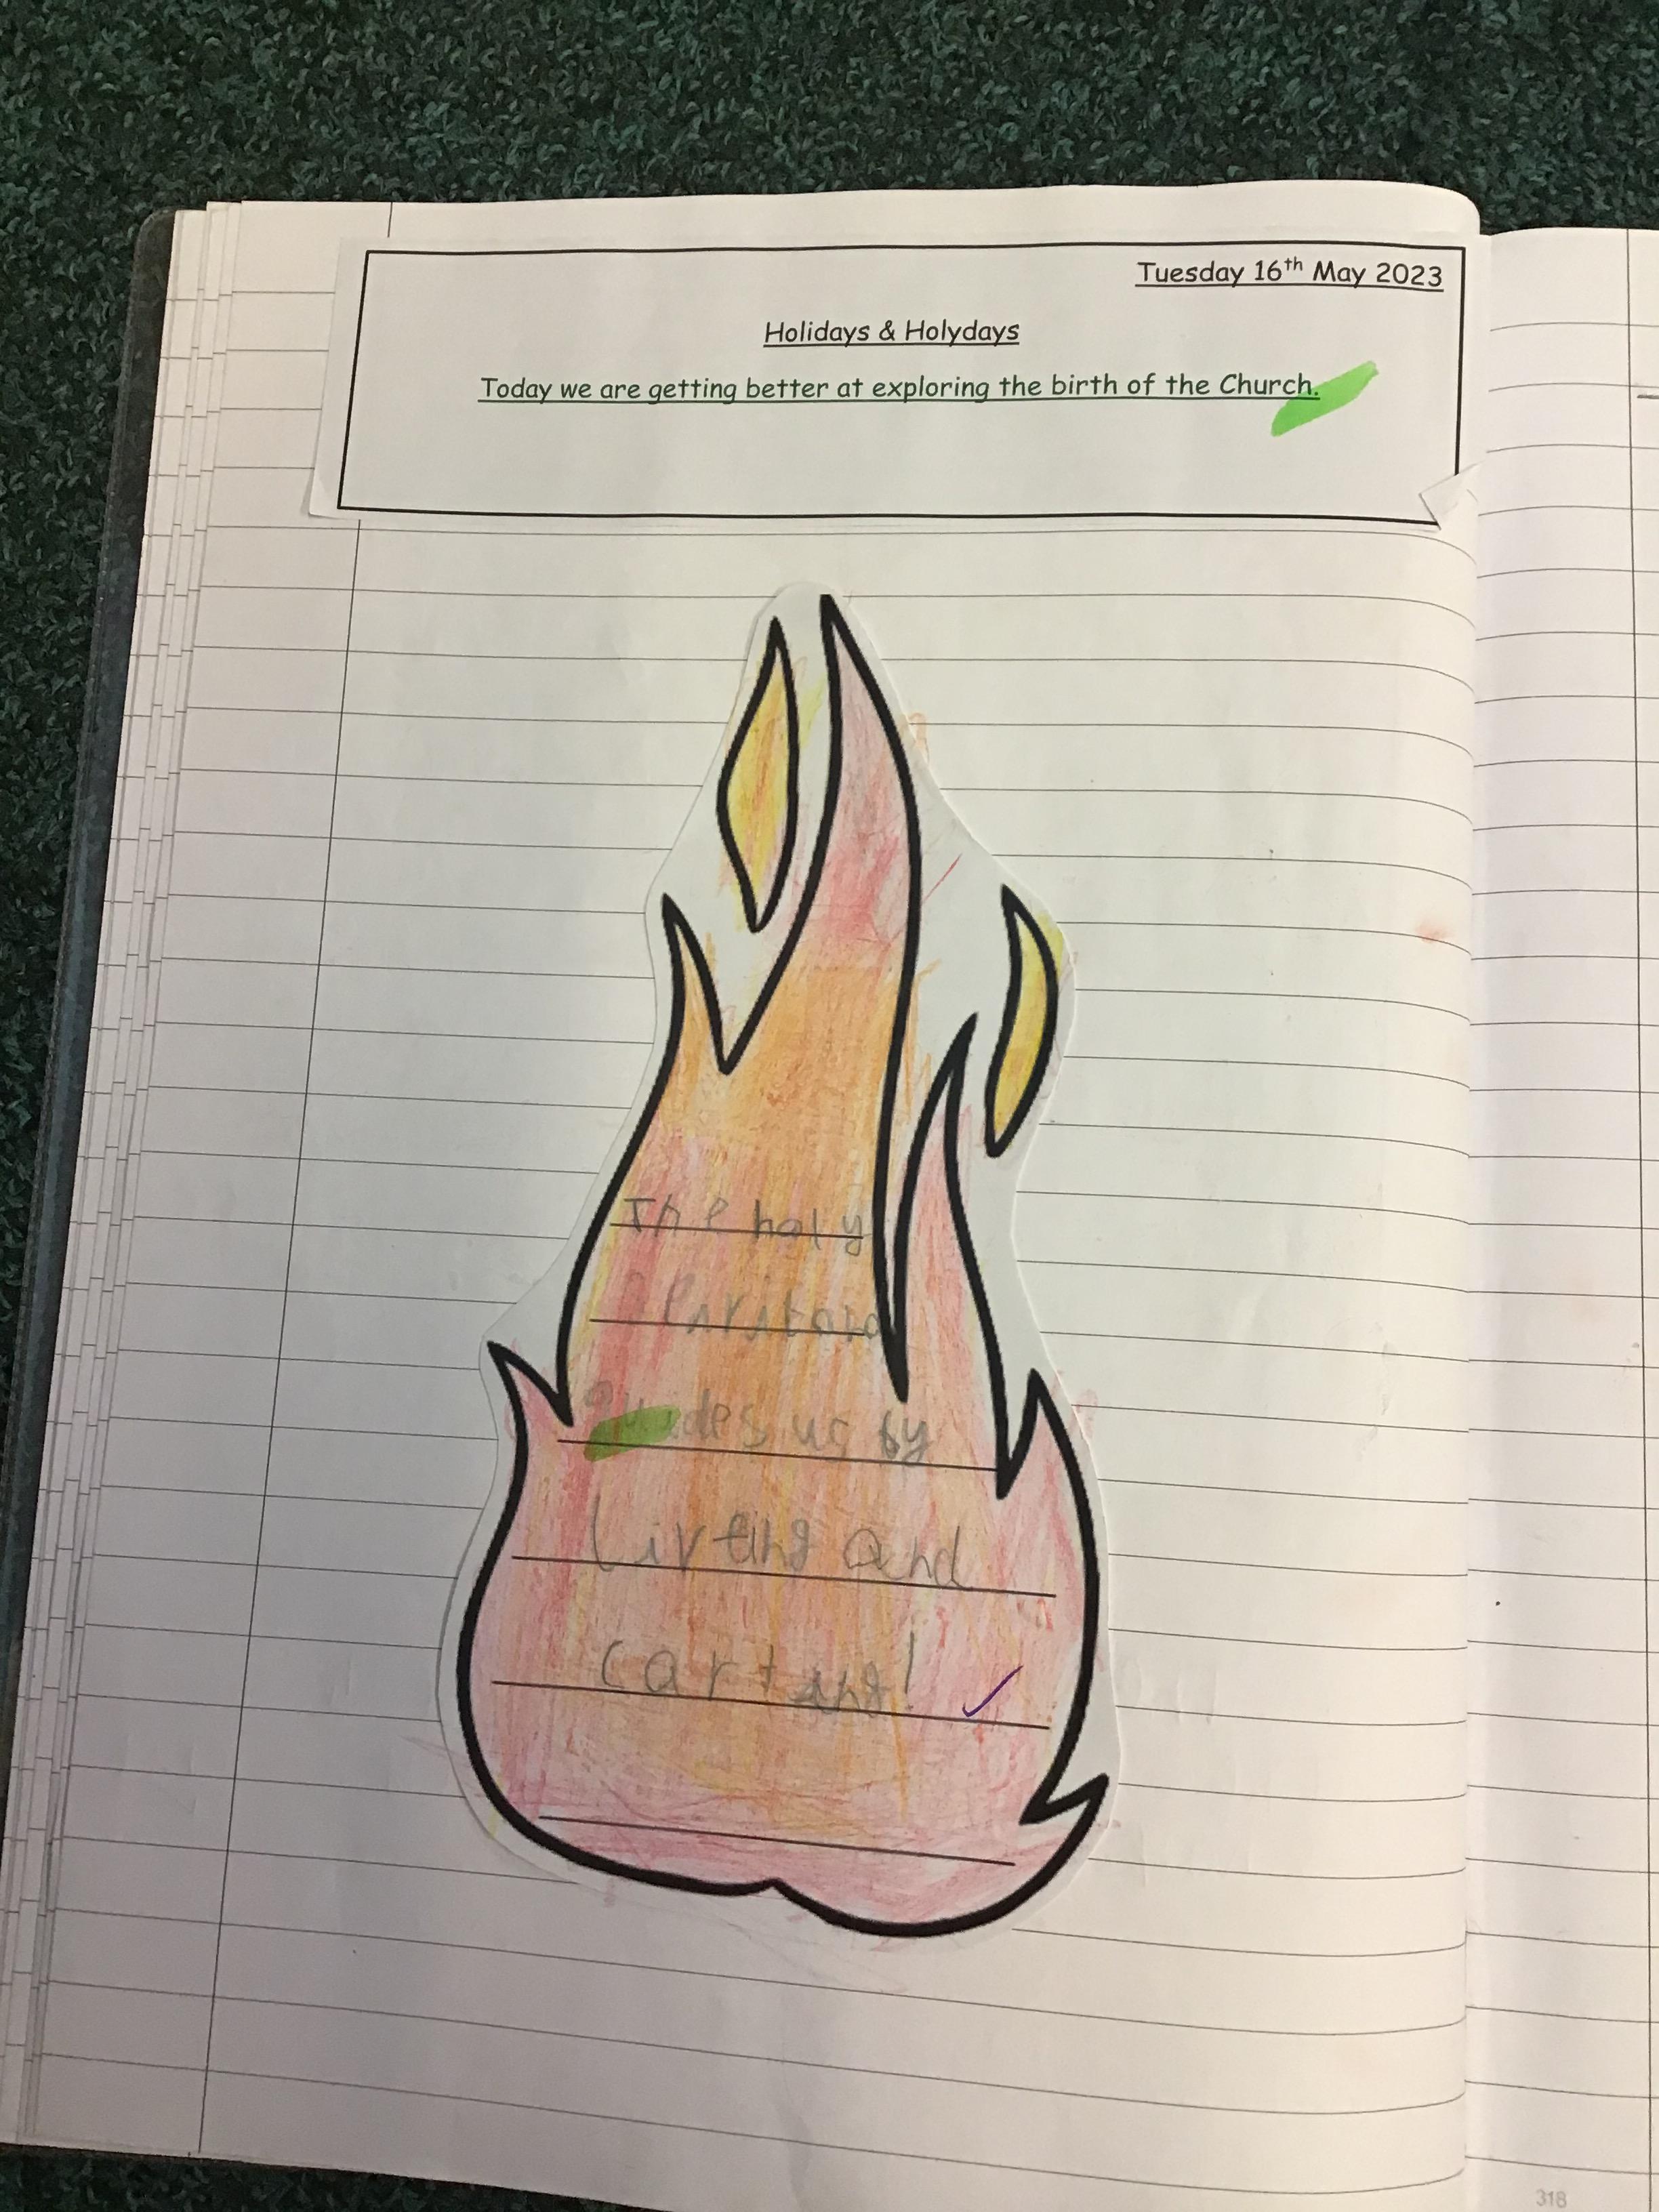 Tuesday 16th May 2023
Holidays & Holydays
Today we are getting better at exploring the birth of the Church.
The holy
guides us by
and
318